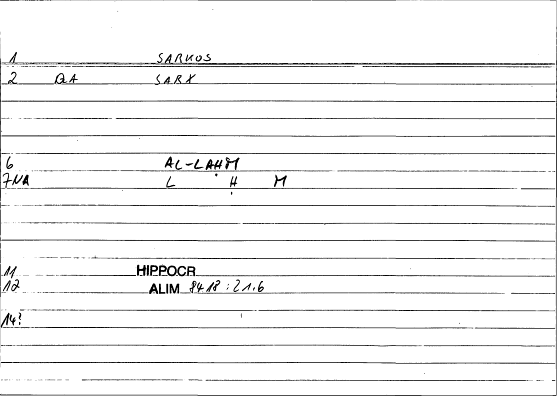 1 SARKOS
2 QA SARX
6 AL-LAḤM
7NA L Ḥ M
11 HIPPOCR
12 ALIM 8418:21.6
14?